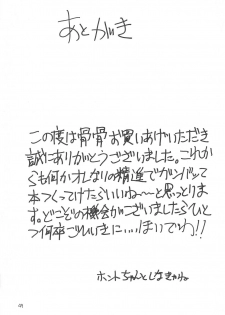 あとがき
この度は骨骨お買いあげいただき
誠にありがとうございました。これか
らも何かオレなりの精進でガンバって
本つくってけたらいいね〜と思っとりま
す。どこぞの機会がございましたらひと
つ何卒ごひいきに…ほいでわ!!
ホントちゃんとしなきゃね。